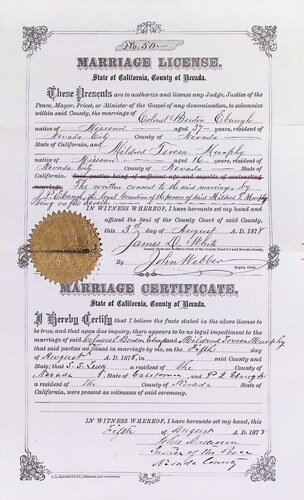 No. 50
MARRIAGE LICENSE.
State of California, County of Nevada.
These Presents are to authorize and license any Judge, Justice of the
Peace, Mayor, Priest, or Minister of the Gospel of any denomination, to solemnize
within said County, the marriage of Colonel Benton Ebaugh
native of Missouri aged 37 years, resident of
Nevada City County of Nevada
State of California, and Mildred Teresa Murphy
native of Missouri aged 16 years, resident of
Nevada City County of Nevada State of California
said parties being of sufficient age and capable of contracting
marriage. The written consent to the said marriage, by
P. Ebaugh, the legal Guardian of the person of said Mildred T. Murphy
being on file herein
IN WITNESS WHEREOF, I have hereunto set my hand and
affixed the Seal of the County Court of said County,
this 3rd day of August A.D. 1878
James D. White
County Clerk
By John Webber
Deputy Clerk
MARRIAGE CERTIFICATE.
State of California, County of Nevada.
I Hereby Certify that I believe the facts stated in the above license
to be true, and that upon due inquiry, there appears to be no legal impediment to the
marriage of said Colonel Benton Ebaugh and Mildred Teresa Murphy
that said parties were joined in marriage by me, on the Fifth day
of August A.D. 1878, in said County and
State; that a resident of the
Nevada State of California and P. L. Ebaugh
a resident of the County of Nevada
State of California, were present as witness of said ceremony.
IN WITNESS WHEREOF, I have hereunto set my hand, this
Fifth of August A.D. 1878
John Anderson
Justice of the Peace
Nevada County